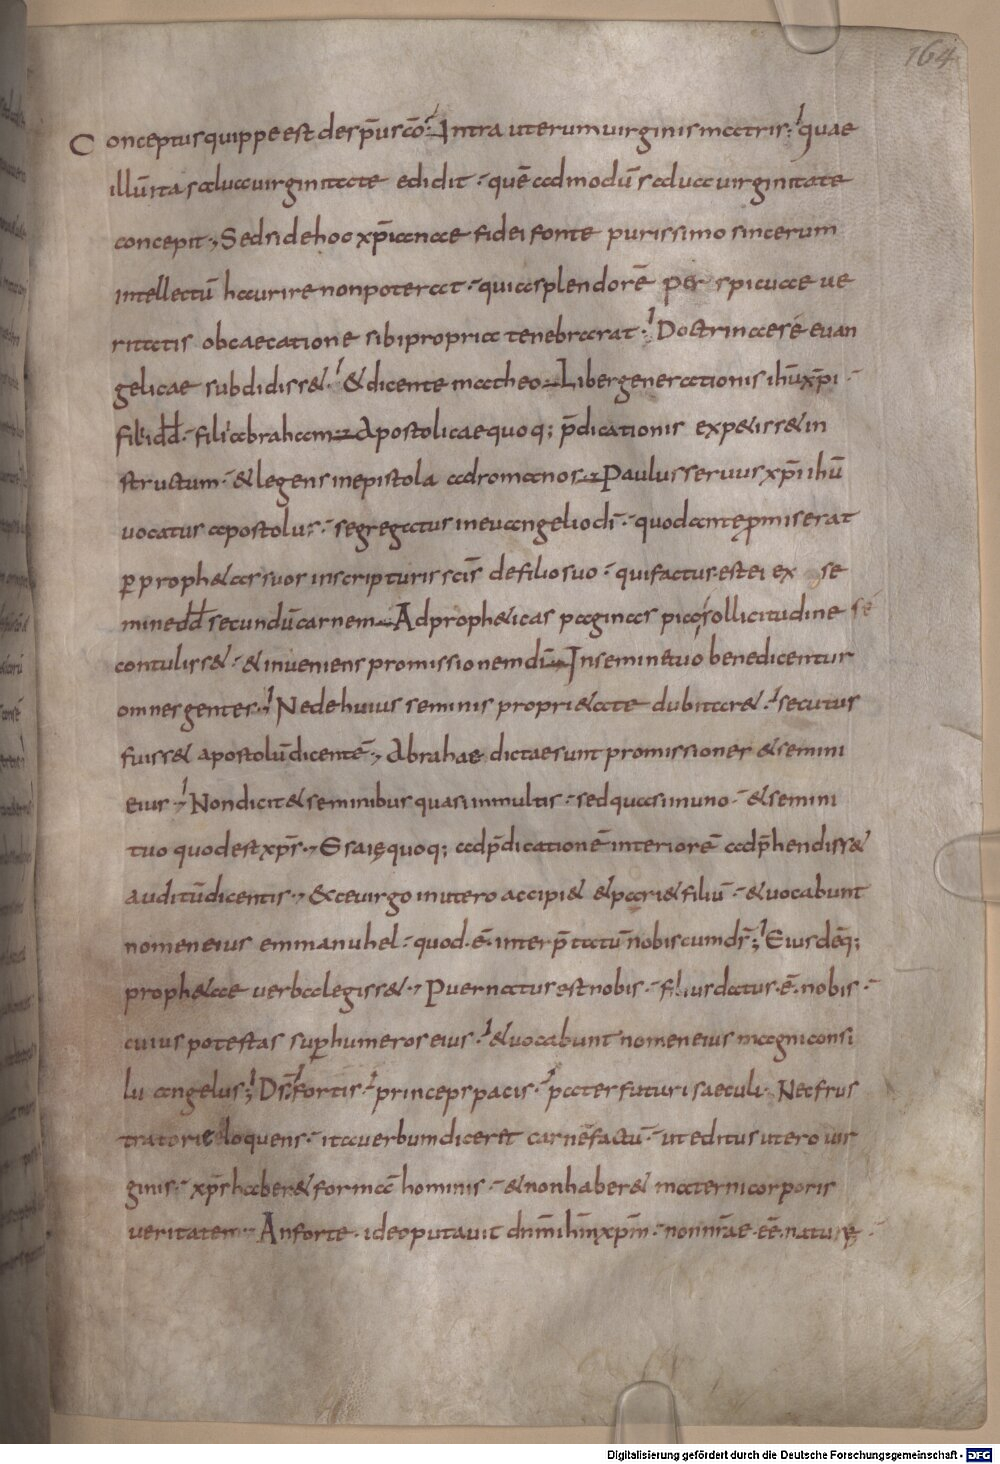 164
Conceptus quippe est de sp̄u sc̄o. Intra uterum uirginis matris. quae
illū ita salua uirginitate edidit. quē admodū salua uirginitate
concepit. Sed si de hoc xp̄ianae fidei fonte purissimo sincerum
intellectū haurire non poterat. qui a splendorē perspicuae ue
ritatis obcaecatione sibi propria tenebrarat. Doctrinae sé euan
gelicae subdidiss&. & dicente matheo. Liber generationis ih̄u xp̄i.
filii dd̄. filii abraham. Apostolicae quoq; p̄dicationis expetiss& in
structum. & legens in epistola ad romanos. Paulus seruus xp̄i ih̄u
uocatus apostolus. segregatus in euangelio dī. quod ante p̄miserat
ꝑ proph&as suos in scripturis scīs de filio suo. qui factus est ei ex se
mine dd̄ secundū carnem. Ad proph&icas paginas pia sollicitudine sé
contuliss&. & inueniens promissionem dī. In semine tuo benedicentur
omnes gentes. Ne de huius seminis propri&ate dubitar&. secutus
fuiss& apostolū dicentē. Abrahae dictae sunt promissiones & semini
eius. Non dicit & seminibus quasi in multis. sed quasi in uno. & semini
tuo quod est xp̄s. Esaię quoq; ad p̄dicationē interiorē adp̄hendiss&
auditū dicentis. Ecce uirgo in utero accipi& & pari& filiū. & uocabunt
nomen eius emmanuhel. quod.ē. interp̄tatū nobiscum ds̄; Eiusdēq;
proph&ae uerba legiss&. Puer natus est nobis. filius datus.ē. nobis.
cuius potestas suꝑ humeros eius. & uocabunt nomen eius magni consi
lii angelus; Ds̄ fortis. princeps pacis. pater futuri saeculi. Nec frus
tratoriæ loquens. ita uerbum diceret carnē factū. ut editus utero uir
ginis. xp̄s haber& formā hominis. & non haber& materni corporis
ueritatem. An forte ideo putauit dn̄m ih̄m xp̄m. non nr̄ae.eē.naturę.
Digitalisierung gefördert durch die Deutsche Forschungsgemeinschaft - DFG